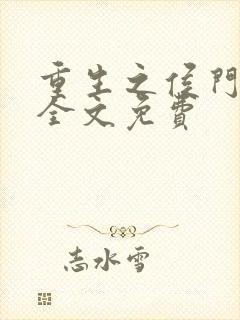 重生之侯門
全文免費
志水雪